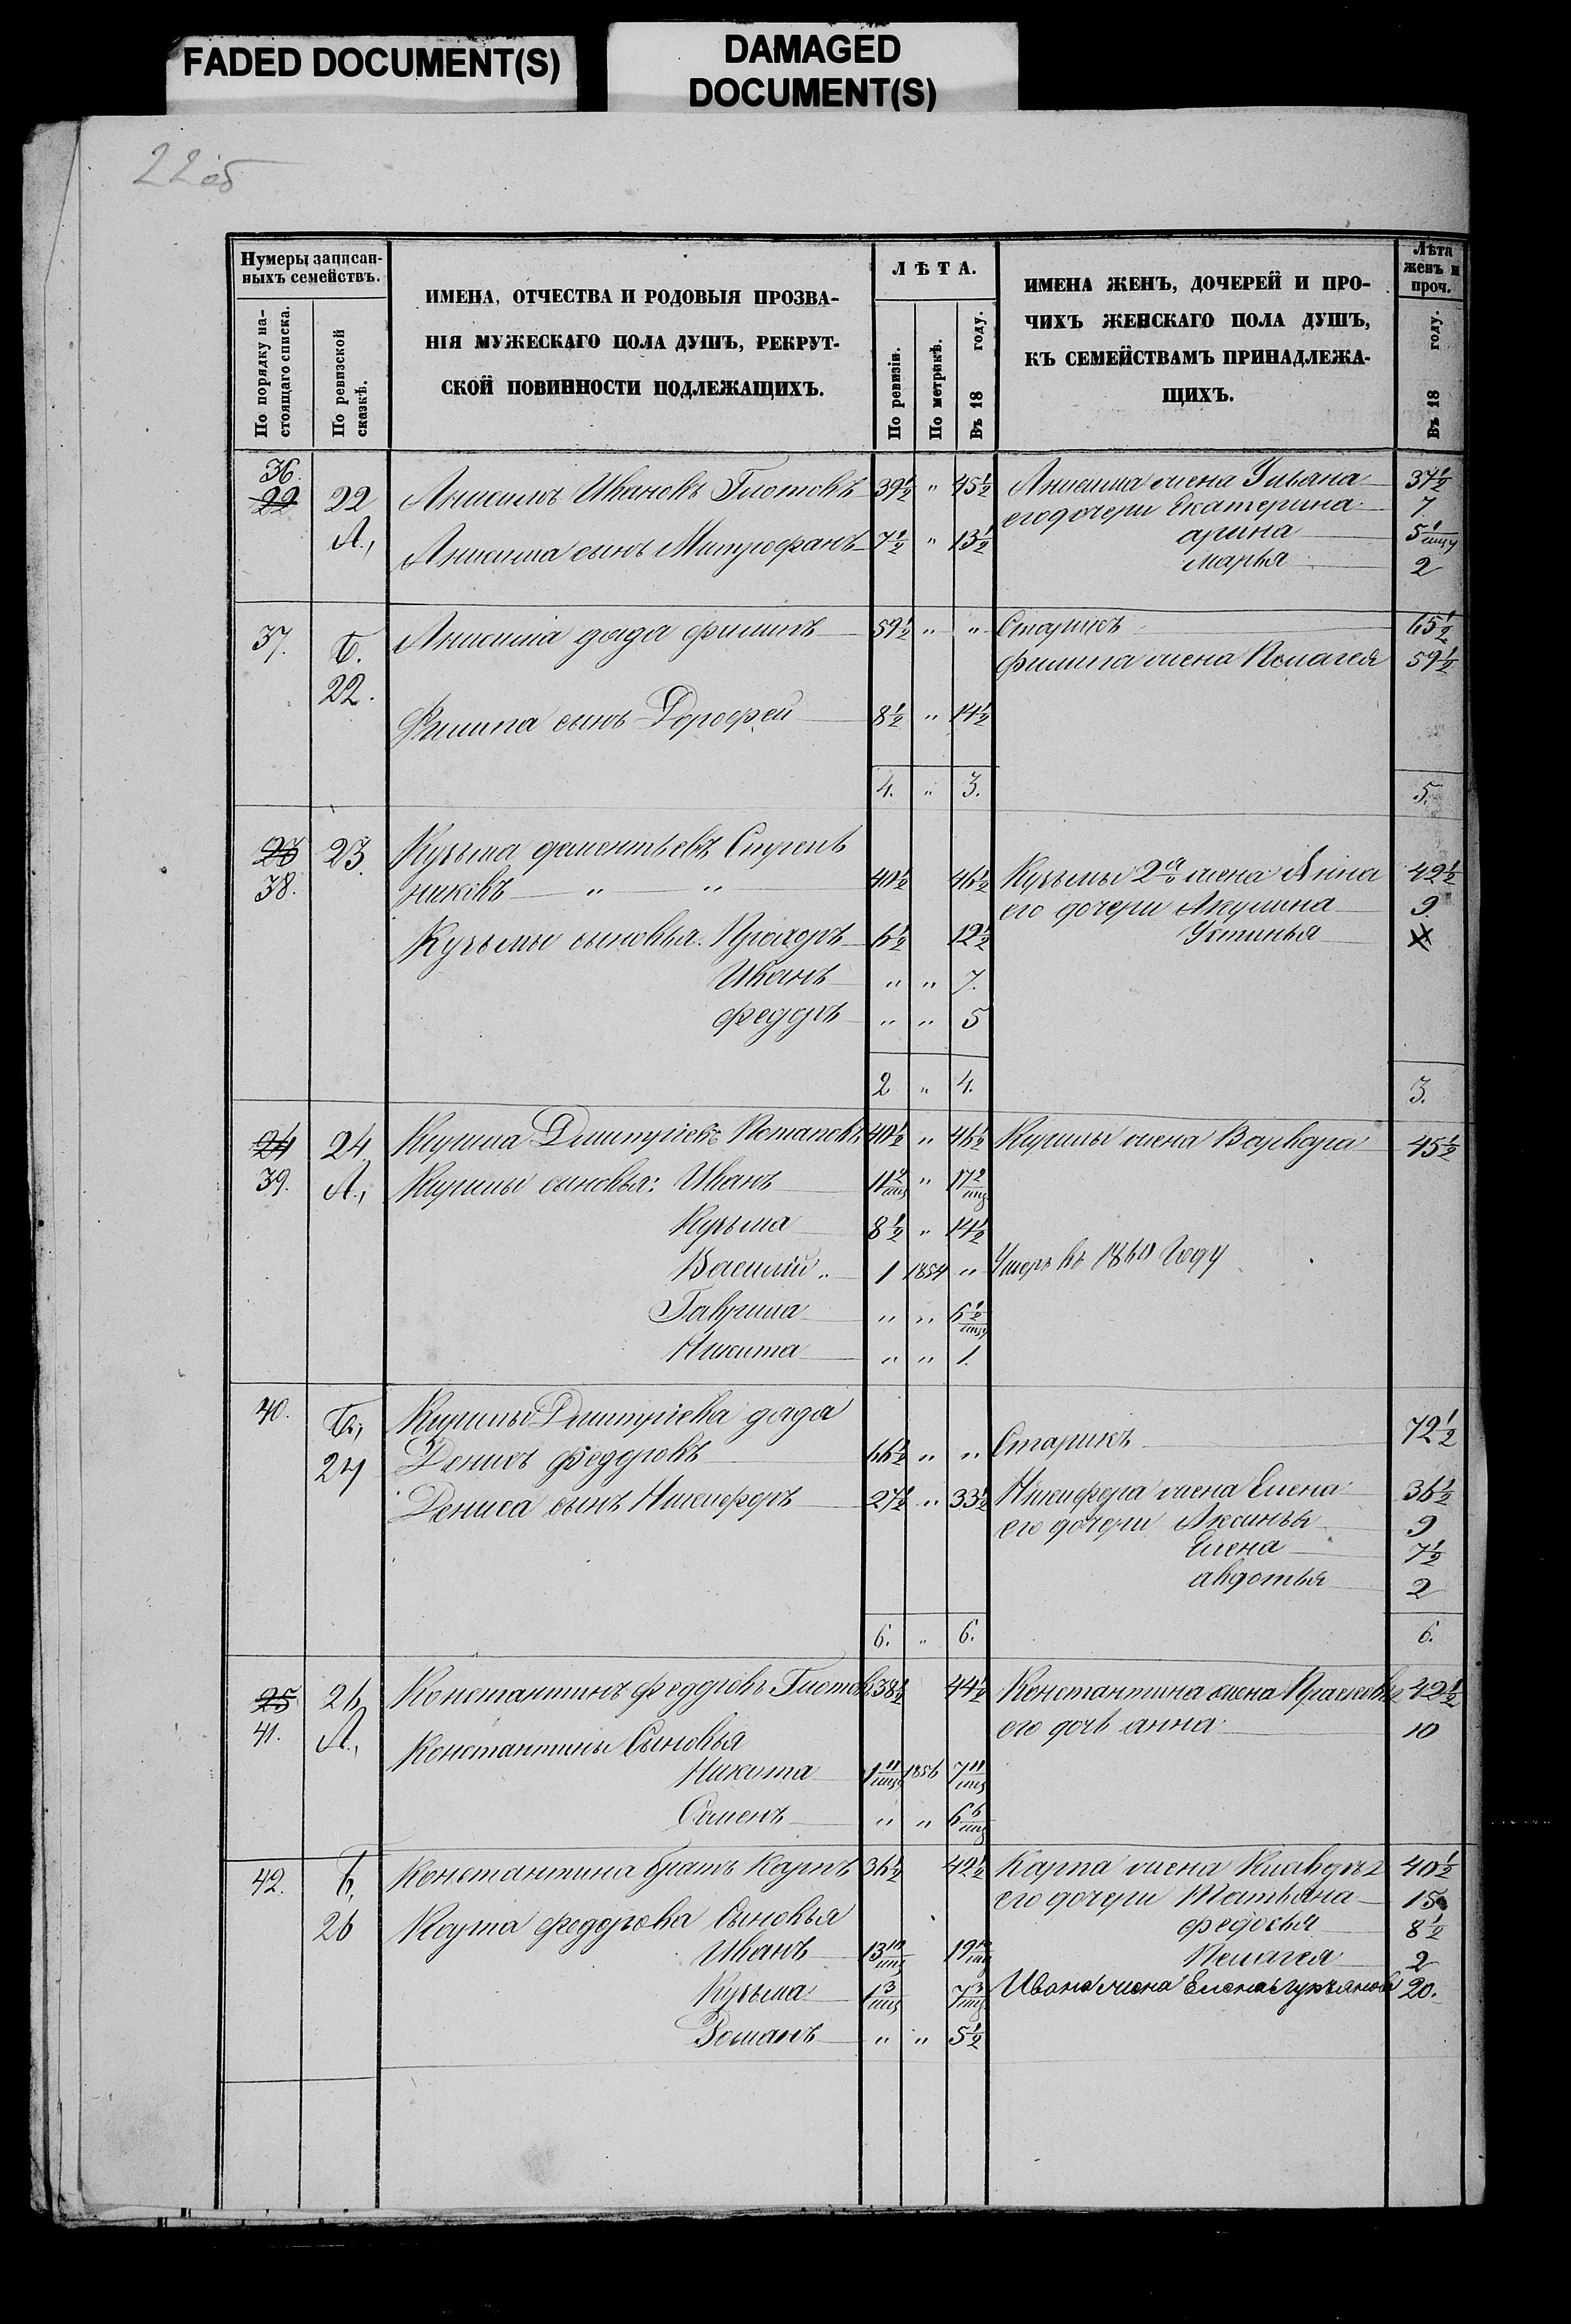 FADED DOCUMENT(S)
DAMAGED
DOCUMENT(S)
22 об
Нумеры записан-
ныхъ семействъ.
По порядку на-
стоящаго списка.
По ревизской
сказкѣ.
ИМЕНА, ОТЧЕСТВА И РОДОВЫЯ ПРОЗВА-
НІЯ МУЖЕСКАГО ПОЛА ДУШЪ, РЕКРУТ-
СКОЙ ПОВИННОСТИ ПОДЛЕЖАЩИХЪ.
ЛѢТА.
По ревизіи.
По метрикѣ.
Въ 18 году.
ИМЕНА ЖЕНЪ, ДОЧЕРЕЙ И ПРО-
ЧИХЪ ЖЕНСКАГО ПОЛА ДУШЪ,
КЪ СЕМЕЙСТВАМЪ ПРИНАДЛЕЖА-
ЩИХЪ.
Лѣта
женъ и
проч.
Въ 18 году.
36.
22 22 Анисимъ Ивановъ Глотовъ 39½ " 45½ Анисима жена Ульяна 37½
А., его дочери Екатерина 7
Анисима сынъ Митрофанъ 7½ " 13½ арина 5
марья 2
37. Б. Анисима дядя филипъ 59½ " " Старикъ 65½
22. филипа жена Пелагея 59½
Филипа сынъ Дорофей 8½ " 14½
4. " 3. 5.
23 23. Кузьма
38. никовъ " " 40½ 46½ Кузьмы 2я жена Анна 42½
его дочери Акулина 9
Кузьмы сыновья: Прохоръ 6½ 12½ Устинья
Иванъ " " 7.
Федоръ " " 5
2 " 4. 3.
24 24 Кирила Дмитріевъ Потаповъ 40½ " 46½ Кирилы жена Варвара 45½
39. А., Кирилы сыновья: Иванъ 11 2/мц " 17 2/мц
Кузьма 8½ " 14½
Василій " 1 1854 " Умеръ въ 1860 Году
Гаврила " " 6
Никита " " 1.
40. Б., Кирилы Дмитріева дядя
24 Денисъ Федоровъ 66½ " " Старикъ 72½
Дениса сынъ Никифоръ 27½ " 33½ Никифора жена Елена 36½
его дочери Аксинья 9
Елена 7½
авдотья 2
6. " 6. 6.
25 26 Константинъ федоровъ Глотовъ 38½ 44½ Константина жена Прасковья 42½
41. А., его дочь анна 10
Константины Сыновья
Никита 1 11/мц 1856 7 11/мц
Семенъ " " 6 6/мц
42. Б, Константина братъ Карпъ 36½ 42½ Карпа жена 40½
26 его дочери Татьяна 15
Карпа федорова Сыновья федосья 8½
Иванъ 13 10/мц 19 10/мц Пелагея 2
Кузьма 1 3/мц 7 3/мц Ивана жена Елена 20.
Романъ " " 5½